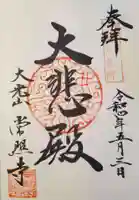 奉拝
令和五年五月三日
大悲殿
大光山
常照寺